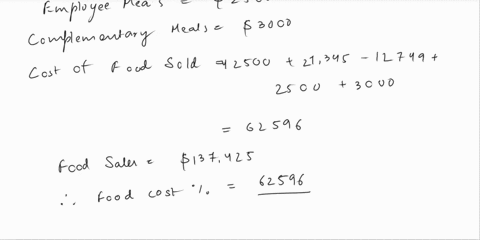 Employee Meals = $2500
Complementary Meals = $3000
Cost of Food Sold = 42500 + 27,345 - 12749 +
2500 + 3000
= 62596
Food Sales = $137,425
∴ Food cost %. = 62596